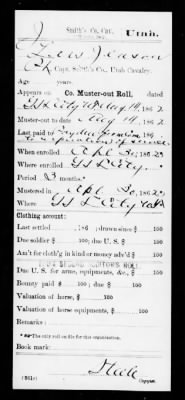 Smith's Co, Cav. Utah.
Capt. Smith's Co., Utah Cavalry.
Age years.
Appears on Co. Muster-out Roll, dated
G S L City U T Aug 14, 1862
Muster-out to date Aug 14, 1862
Last paid to
When enrolled Apl 30, 1862
Where enrolled G S L City
Period 3 months.
Mustered in Apl 30, 1862
Where G S L City Utah
Clothing account:
Last settled , 186 ; drawn since $ 100
Due soldier $ 100; due U. S. $ 100
Am't for cloth'g in kind or money adv'd $ 100
Due U. S. for arms, equipments, &c., $ 100
Bounty paid $ 100; due $ 100
Valuation of horse, $ 100
Valuation of horse equipments, $ 100
Remarks:
Book mark:
(361r) Copyist.